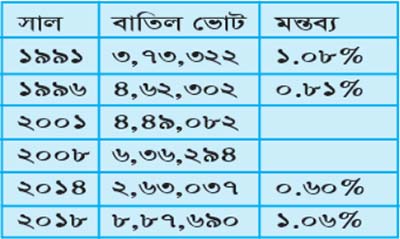 সাল বাতিল ভোট মন্তব্য
১৯৯১ ৩,৭৩,৩২২ ১.০৮%
১৯৯৬ ৪,৬২,৩০২ ০.৮১%
২০০১ ৪,৪৯,০৮২
২০০৮ ৬,৩৬,২৯৪
২০১৪ ২,৬৩,০৩৭ ০.৬০%
২০১৮ ৮,৮৭,৬৯০ ১.০৬%